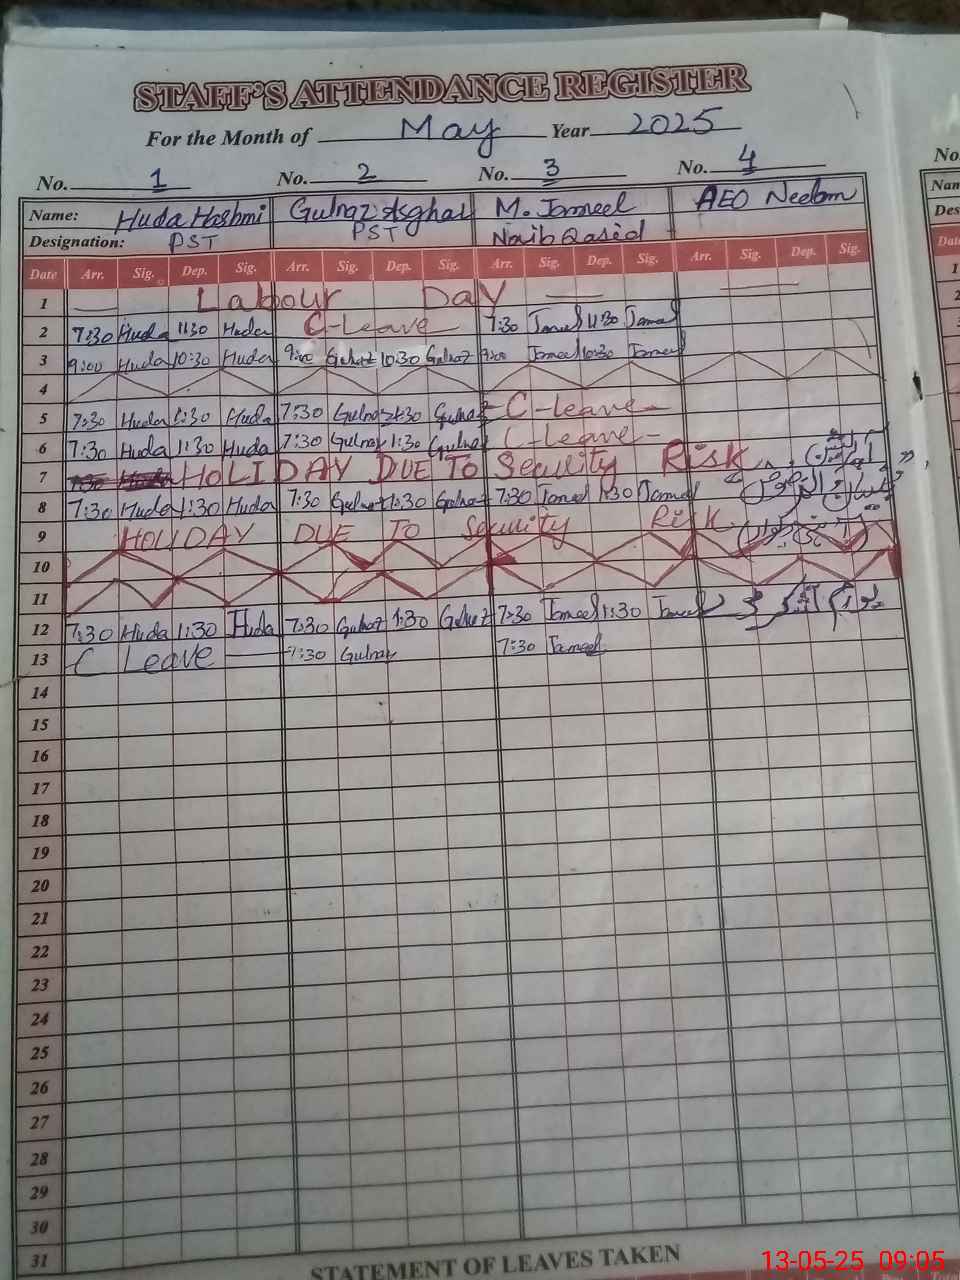 STAFF'S ATTENDANCE REGISTER
For the Month of May Year 2025
No. 1 No. 2 No. 3 No. 4 No.
Name: Huda Hashmi Gulnaz Asghar M. Jameel AEO Neelam Nam
Designation: PST PST Naib Qasid Des
Date Arr. Sig. Dep. Sig. Arr. Sig. Dep. Sig. Arr. Sig. Dep. Sig. Arr. Sig. Dep. Sig. Dat
1 Labour Day 1
2 7:30 Huda 11:30 Huda C-Leave 7:30 Jameel 11:30 Jameel 2
3 9:00 Huda 10:30 Huda 9:00 Gulnaz 10:30 Gulnaz 9:00 Jameel 10:30 Jameel
4
5 7:30 Huda 1:30 Huda 7:30 Gulnaz 1:30 Gulnaz C-leave-
6 7:30 Huda 1:30 Huda 7:30 Gulnaz 1:30 Gulnaz C-leave-
7 HOLIDAY DUE TO Security Risk
8 7:30 Huda 1:30 Huda 7:30 Gulnaz 1:30 Gulnaz 7:30 Jameel 1:30 Jameel
9 HOLIDAY DUE TO Security Risk
10
11
12 7:30 Huda 1:30 Huda 7:30 Gulnaz 1:30 Gulnaz 7:30 Jameel 1:30 Jameel
13 C Leave 7:30 Gulnaz 7:30 Jameel
14
15
16
17
18
19
20
21
22
23
24
25
26
27
28
29
30
31
STATEMENT OF LEAVES TAKEN
13-05-25 09:05